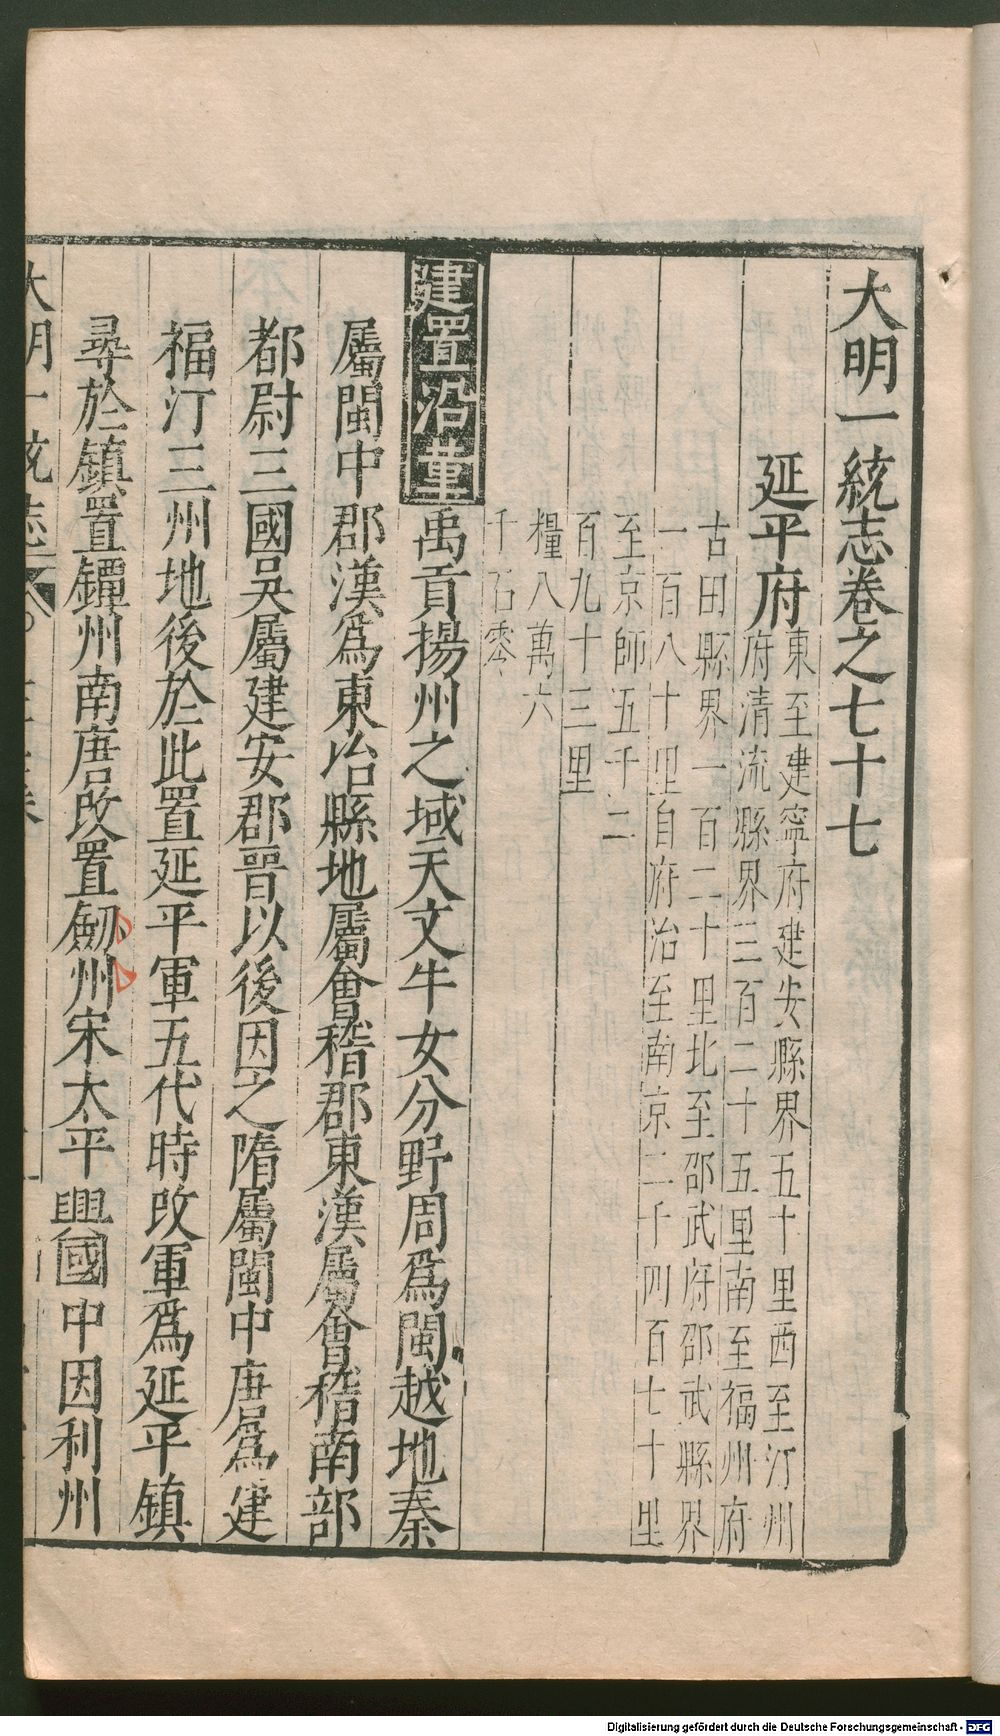 大明一統志卷之七十七
延平府
東至建寧府建安縣界五十里西至汀州
府清流縣界三百二十五里南至福州府
古田縣界一百二十里北至邵武府邵武縣界
一百八十里自府治至南京二千四百七十里
至京師五千二
百九十三里
糧八萬六
千石零
建置沿革
禹貢揚州之域天文牛女分野周爲閩越地秦
屬閩中郡漢爲東冶縣地屬會稽郡東漢屬會稽南部
都尉三國吳屬建安郡晉以後因之隋屬閩中唐爲建
福汀三州地後於此置延平軍五代時改軍爲延平鎮
尋於鎮置鐔州南唐改置劒州宋太平興國中因利州
大明一統志
Digitalisierung gefördert durch die Deutsche Forschungsgemeinschaft - DFG